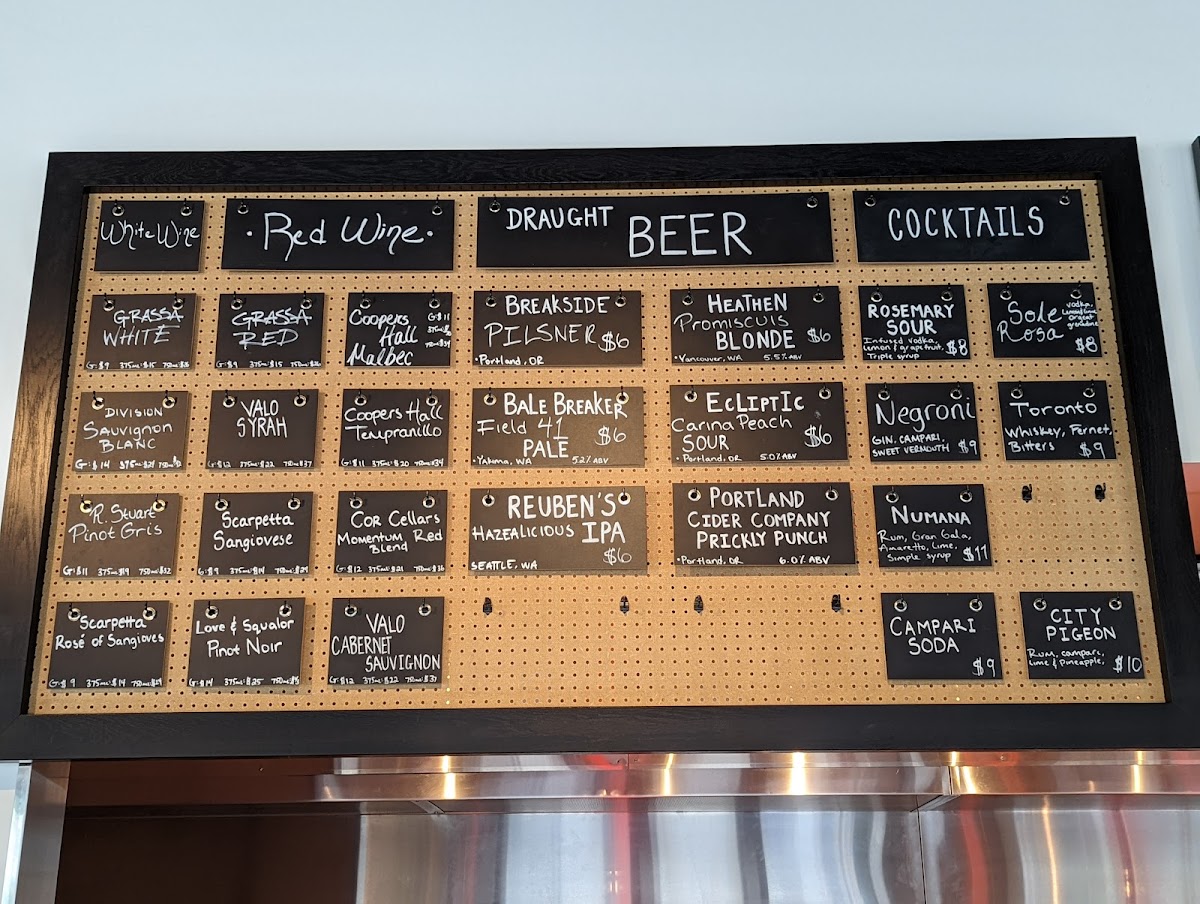 White Wine
GRASSA
WHITE
G:$9 375ml:$15
DIVISION
SAUVIGNON
BLANC
G:$14
R. Stuart
Pinot Gris
G:$11 375ml:$19 750ml:$32
Scarpetta
Rosé of Sangioves
G:$9 375ml:$14 750ml:$29
· Red Wine ·
GRASSA
RED
G:$9 375ml:$15
Coopers
Hall
Malbec
G:$11
VALO
SYRAH
G:$12 375ml:$22 750ml:$37
Coopers Hall
Tempranillo
G:$11 375ml:$20 750ml:$34
Scarpetta
Sangiovese
G:$9 375ml:$14 750ml:$29
Cor Cellars
Momentum Red
Blend
G:$12 375ml:$21 750ml:$36
Love & Squalor
Pinot Noir
G:$14 375ml:$25
VALO
CABERNET
SAUVIGNON
G:$12 375ml:$22 750ml:$37
DRAUGHT BEER
BREAKSIDE
PILSNER $6
·Portland, OR
HEATHEN
Promiscuis
BLONDE $6
·Vancouver, WA 5.5% ABV
BALE BREAKER
Field 41
PALE $6
·Yakima, WA 5.2% ABV
ECLIPTIC
Carina Peach
SOUR $6
·Portland, OR 5.0% ABV
REUBEN'S
HAZEALICIOUS IPA
$6
SEATTLE, WA
PORTLAND
CIDER COMPANY
PRICKLY PUNCH
·Portland, OR 6.0% ABV
COCKTAILS
ROSEMARY
SOUR
Infused vodka,
Lemon & grapefruit,
Triple syrup $8
Sole
Rosa
vodka,
orgeat
grenadine
$8
Negroni
GIN, CAMPARI,
SWEET VERMOUTH $9
Toronto
Whiskey, Fernet,
Bitters $9
NUMANA
Rum, Gran Gala,
Amaretto, Lime,
Simple syrup $11
CAMPARI
SODA
$9
CITY
PIGEON
Rum, campari,
Lime & Pineapple, $10